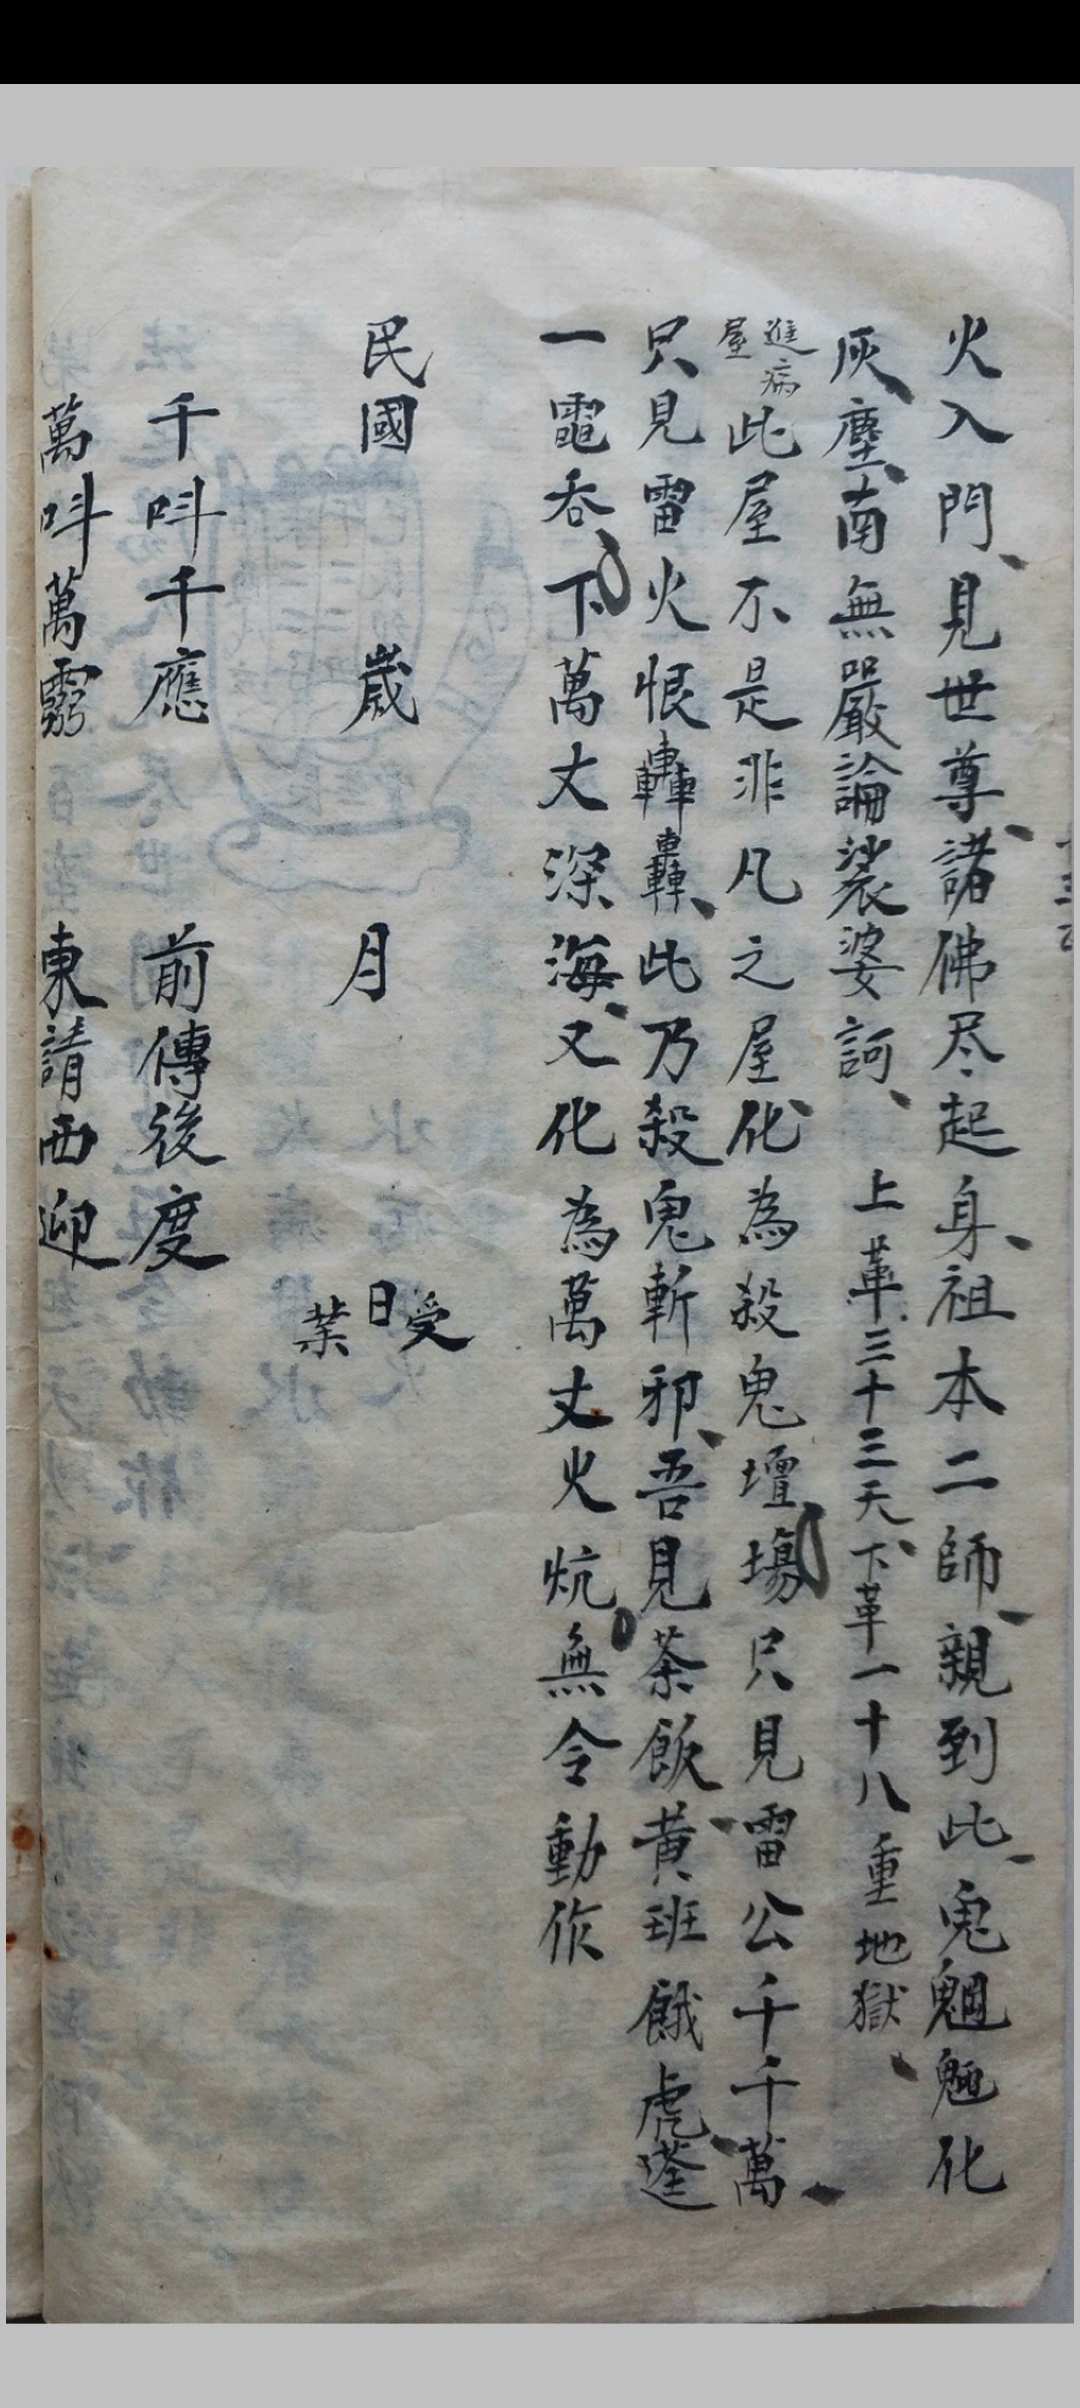 火入門、見世尊、諸佛尽起身、祖本二師、親到此、鬼魍魎化
灰、塵、南無嚴論裟婆訶、上革三十三天、下革一十八重地獄、
進病屋
此屋不是非凡之屋、化為殺鬼壇塲只見雷公千千萬、
只見雷火恨轟轟、此乃殺鬼斬邪、吾見茶飯、黄班餓虎、
一吞、下萬丈深海、又化為萬丈火炕無令動作
民國 歲 月 日受業
千呌千應 前傳後度
萬呌萬靈 東請西迎